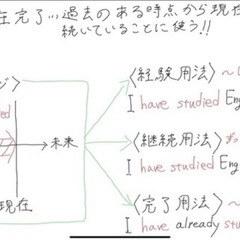 在完了...過去のある時点から現在
続いていることに使う!!
〈経験用法〉〜
I have studied Eng
未来
〈継続用法〉ずっ
I have studied Eng
現在
〈完了用法〉〜
I have already stu